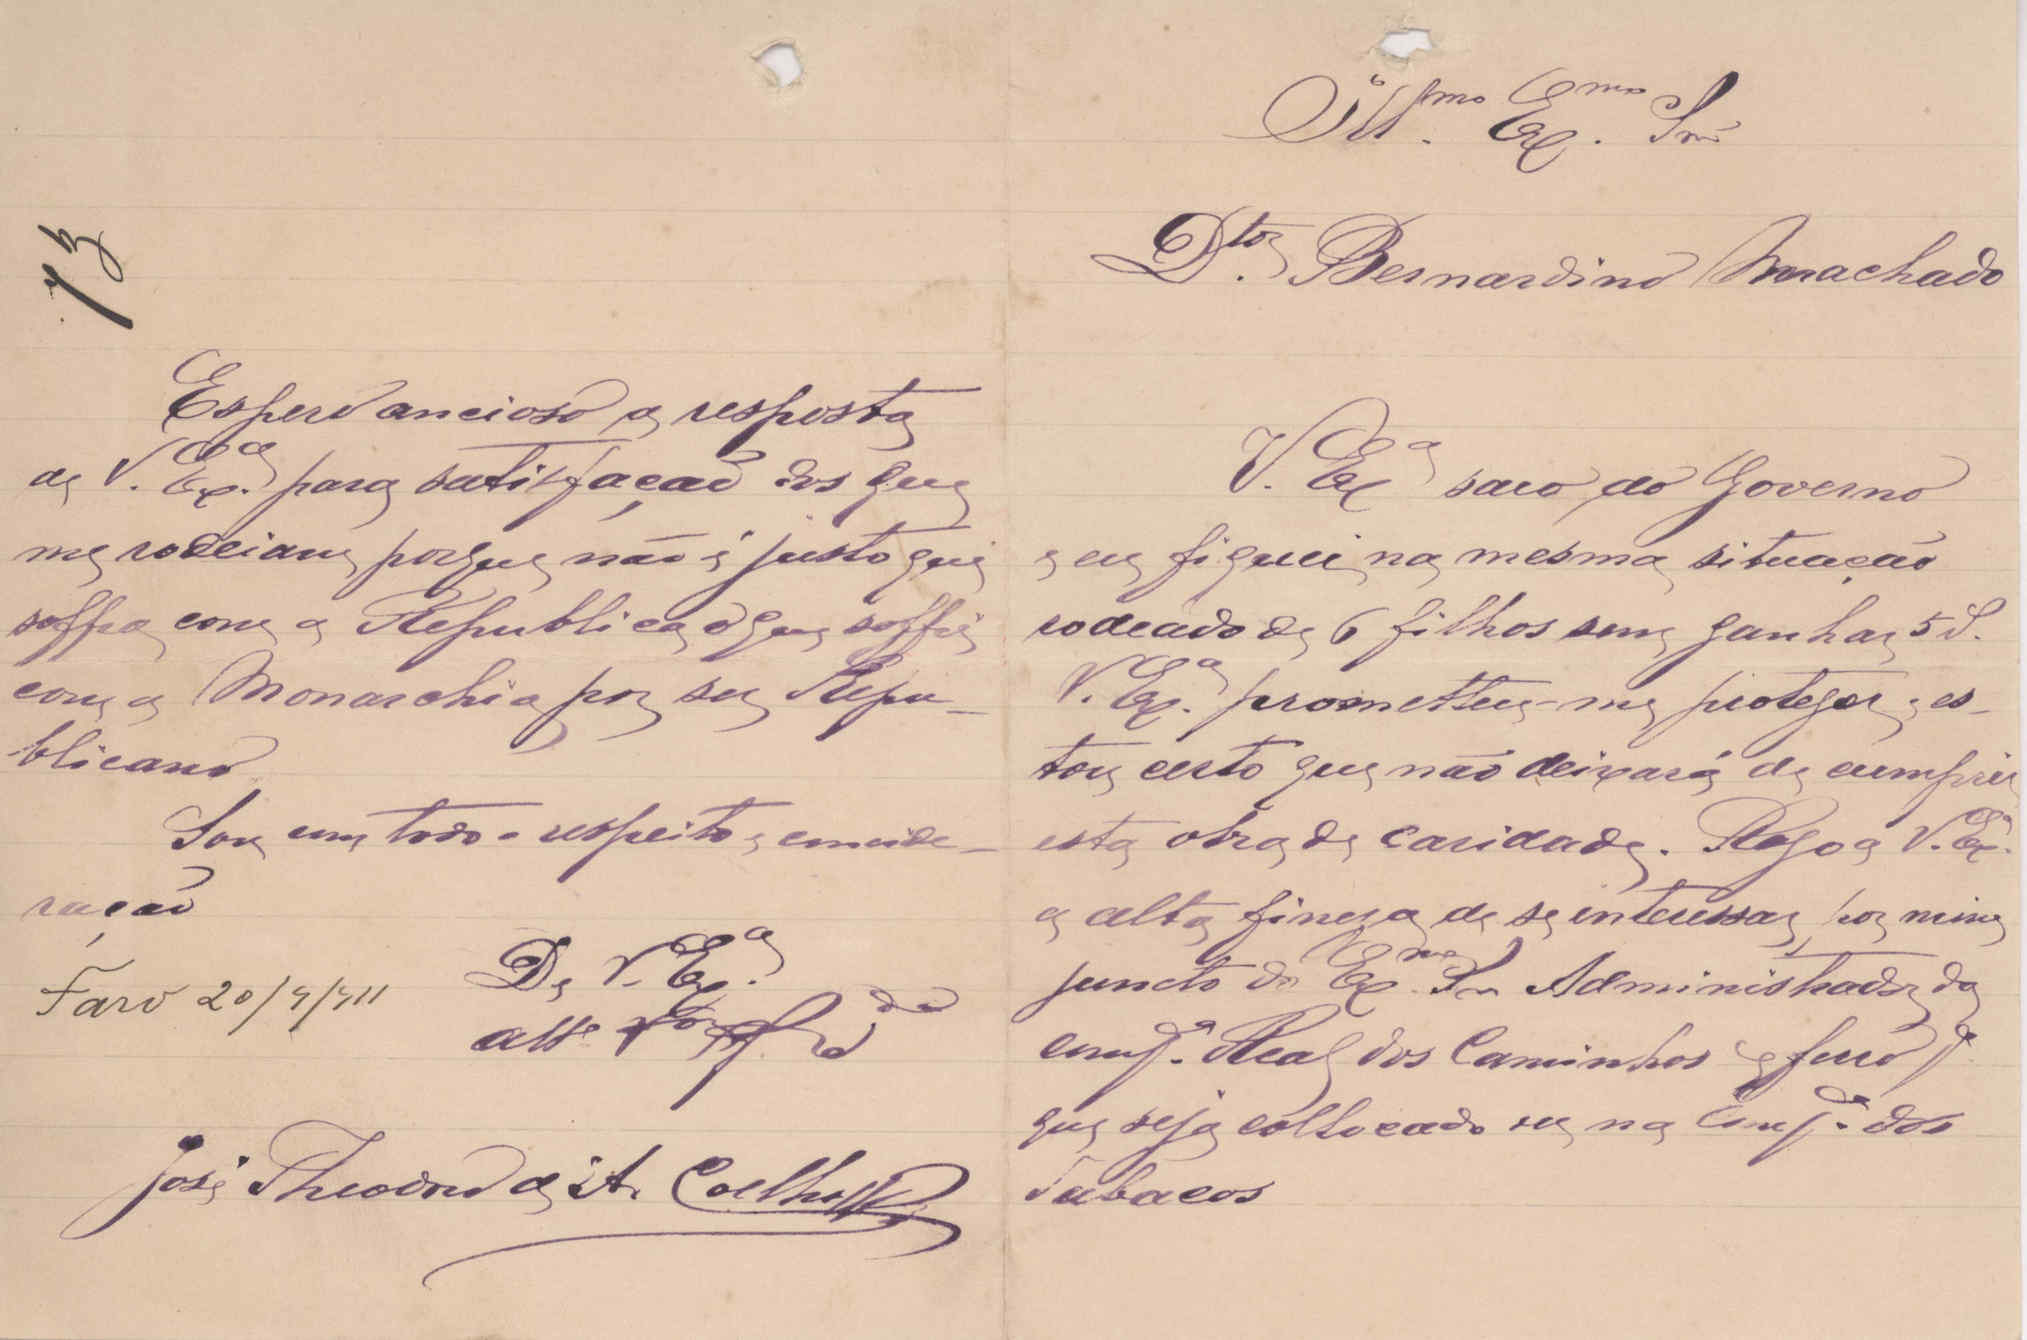 Ill.mo Ex.mo Snr
D.tor Bernardino Machado
V. Exa saio do Governo
e eu fiquei na mesma situação
rodeado de 6 filhos sem ganhar 5 r.
V. Ex.a prometteu-me proteger e es-
tou certo que não deixará de cumprir
esta obra de caridade. Rogo a V. Ex.a
a alta fineza de se interessar por mim
juncto do Ex.mo Snr Administrador da
Comp.a Real dos Caminhos de ferro p.a
que seja collocado ou na Comp.a dos
Tabacos
73
Espero ancioso a resposta
de V. Ex.a para satisfação dos que
me rodeiam porque não é justo que
soffra com a Republica o que soffri
com a Monarchia por ser Repu-
blicano
Sou com todo o respeito e conside-
ração
De V. Ex.a
att.o
Faro 20/9/911
José Theodoro de A. Coelho